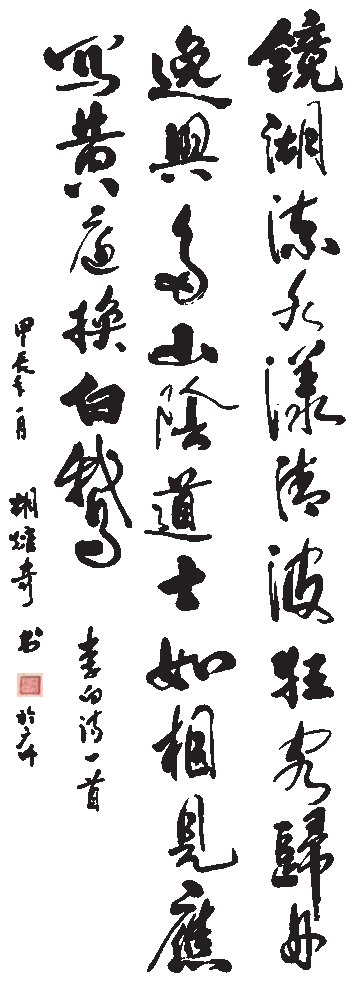 鏡湖流水漾清波狂客歸舟
逸興多山陰道士如相見應
寫黃庭換白鵝
李白诗一首
甲辰年一月
胡
奇书
於广州